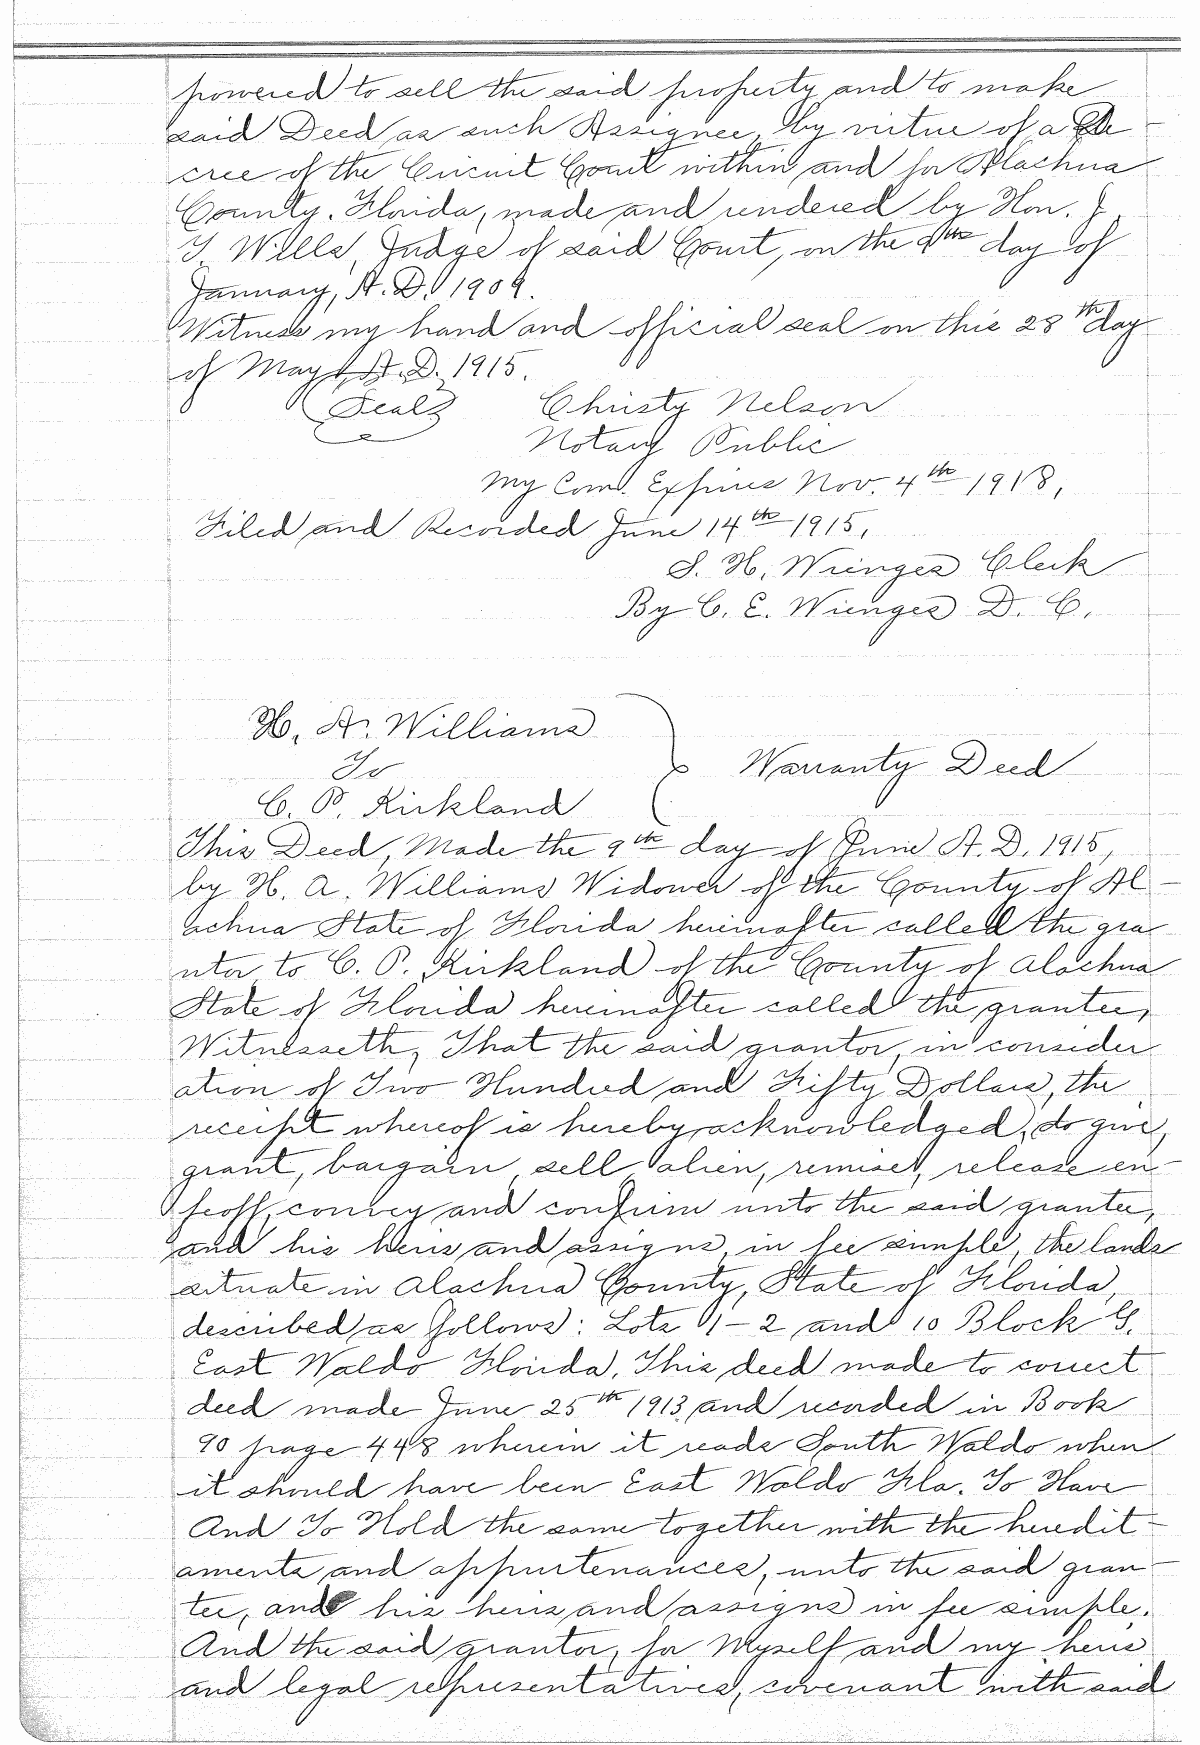 powered to sell the said property and to make
said Deed as such Assignee, by virtue of a De
cree of the Circuit Court within and for Alachua
County. Florida, made and rendered by Hon. J.
T. Wills, Judge of said Court, on the 9th day of
January, A.D. 1909.
Witness my hand and official seal on this 28th day
of May, A.D. 1915.
(Seal) Christy Nelson
Notary Public
My Com. Expires Nov. 4th 1918,
Filed and Recorded June 14th 1915,
S. H. Wienges Clerk
By C. E. Wienges D. C.
H. A. Williams
To
Warranty Deed
C. P. Kirkland
This Deed, Made the 9th day of June A.D. 1915,
by H. A. Williams Widower of the County of Al-
achua State of Florida hereinafter called the gra
ntor, to C. P. Kirkland of the County of Alachua
State of Florida hereinafter called the grantee,
Witnesseth, That the said grantor, in consider
ation of Two Hundred and Fifty Dollars, the
receipt whereof is hereby acknowledged, do give,
grant, bargain, sell, alien, remise, release en-
feoff, convey and confirm unto the said grantee,
and his heirs and assigns, in fee simple, the lands
situate in Alachua County, State of Florida,
described as follows: Lots 1-2 and 10 Block G.
East Waldo Florida. This deed made to correct
deed made June 25th 1913 and recorded in Book
90 page 448 wherein it reads South Waldo when
it should have been East Waldo Fla. To Have
And To Hold the same together with the heredit-
aments and appurtenances, unto the said gran-
tee, and his heirs and assigns in fee simple.
And the said grantor, for Myself and my heirs
and legal representatives, covenant with said